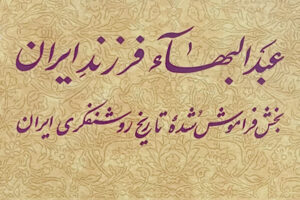 عبدالبهآء فرزندِ ایران
بخش فراموش شدهٔ تاریخ روشنفکری ایران